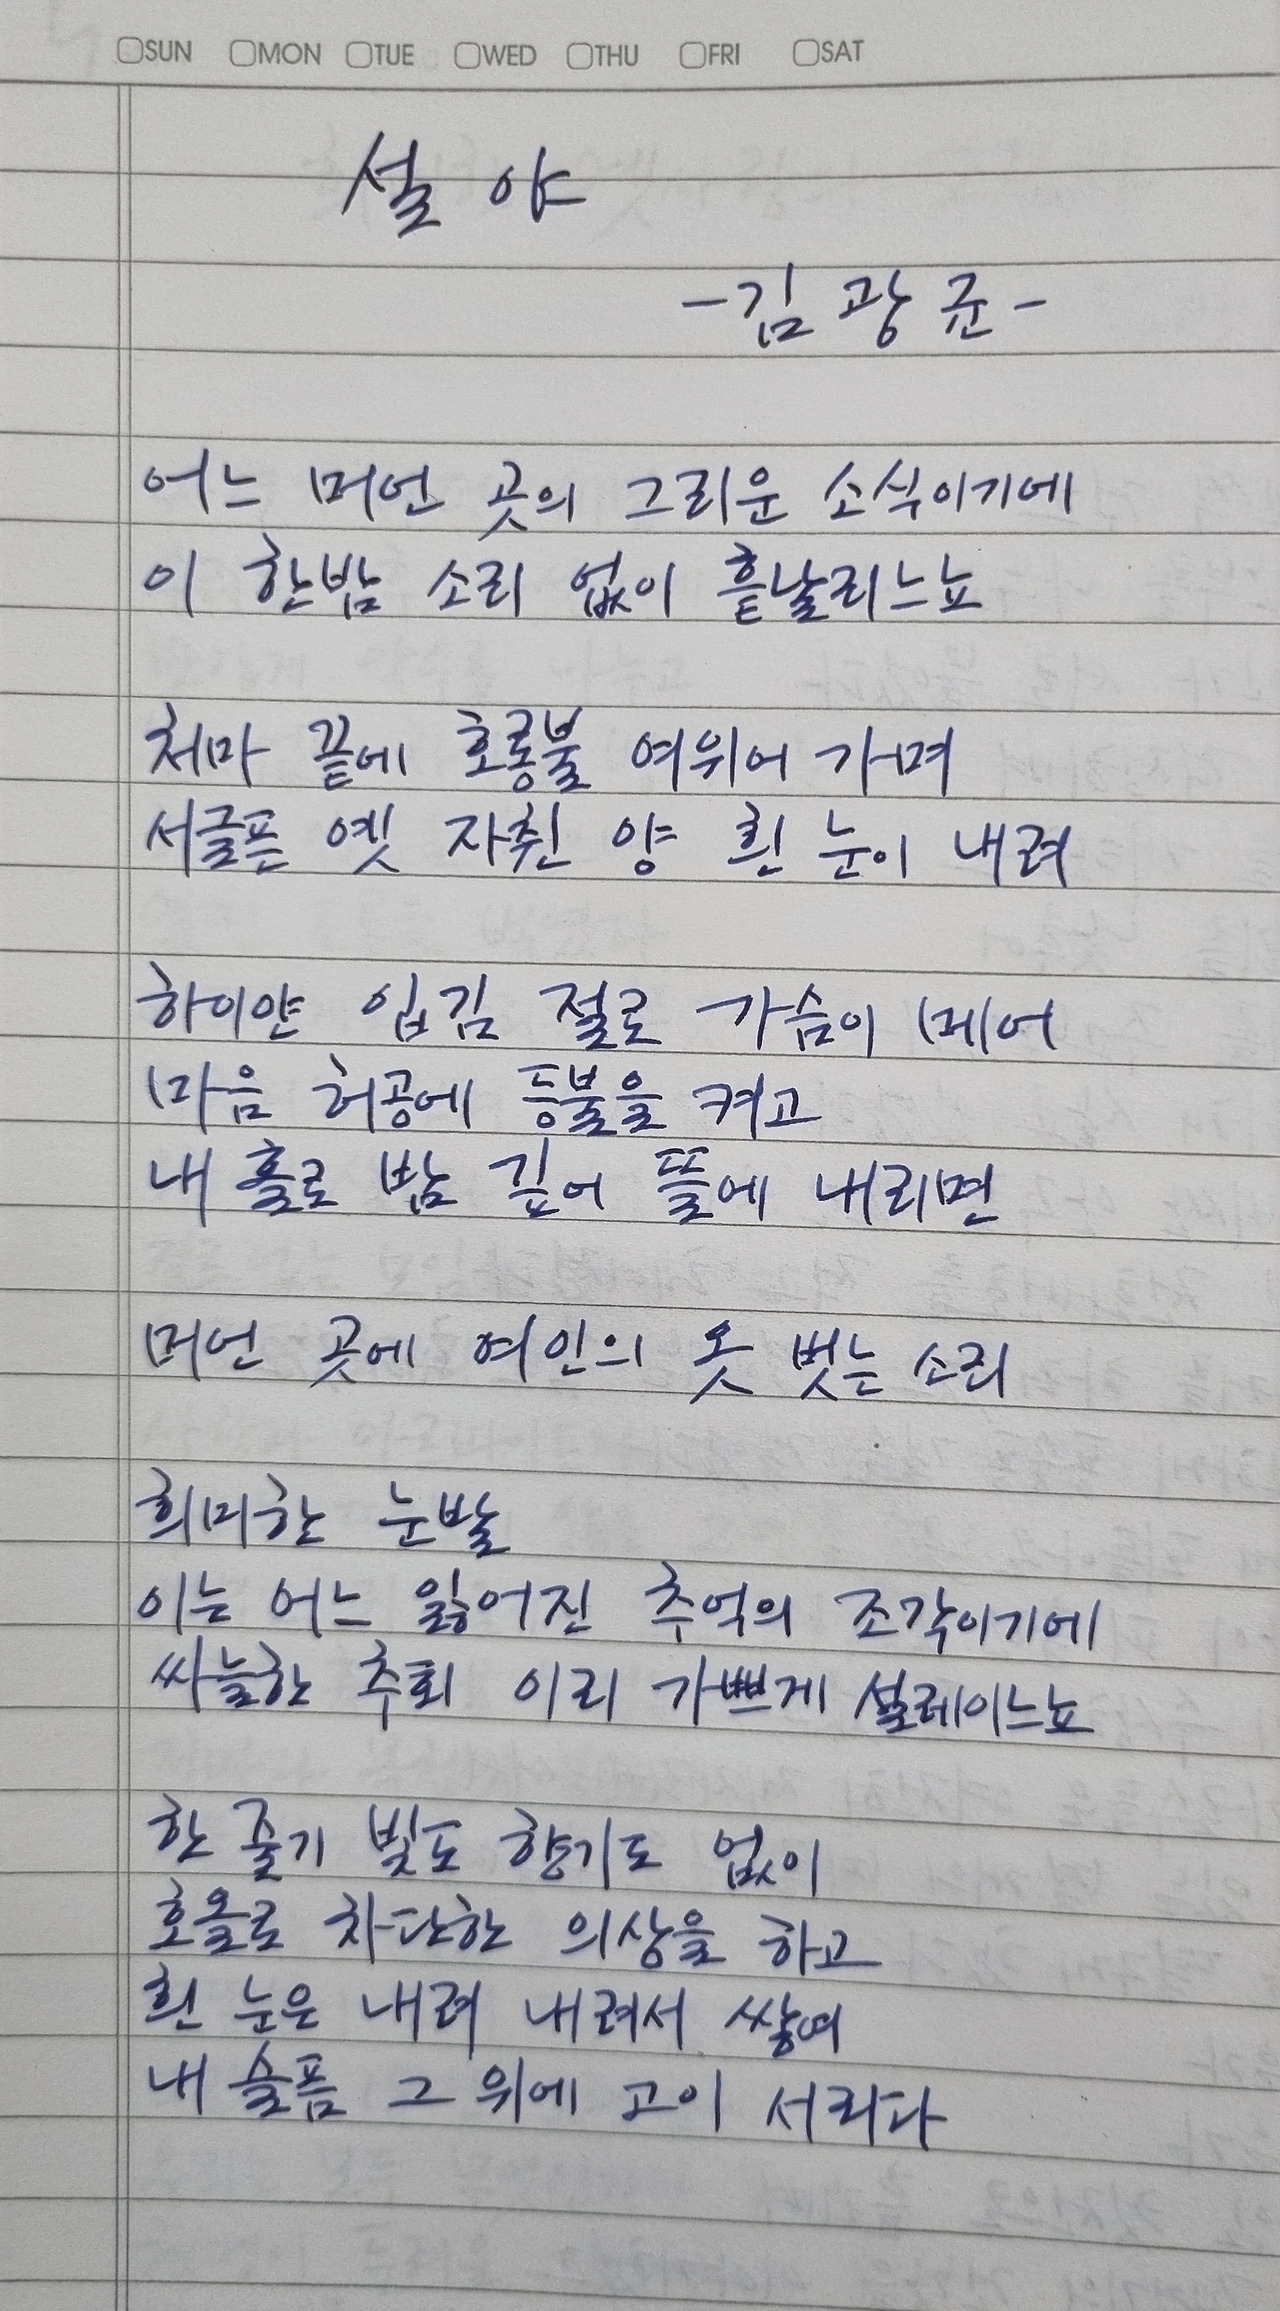 SUN MON TUE WED THU FRI SAT
설 야
-김 광 균-
어느 머언 곳의 그리운 소식이기에
이 한밤 소리 없이 흩날리느뇨
처마 끝에 호롱불 여위어 가며
서글픈 옛 자췬 양 흰 눈이 내려
하이얀 입김 절로 가슴이 메어
마음 허공에 등불을 켜고
내 홀로 밤 깊어 뜰에 내리면
머언 곳에 여인의 옷 벗는 소리
희미한 눈발
이는 어느 잃어진 추억의 조각이기에
싸늘한 추회 이리 가쁘게 설레이느뇨
한 줄기 빛도 향기도 없이
호올로 차단한 의상을 하고
흰 눈은 내려 내려서 쌓여
내 슬픔 그 위에 고이 서리다